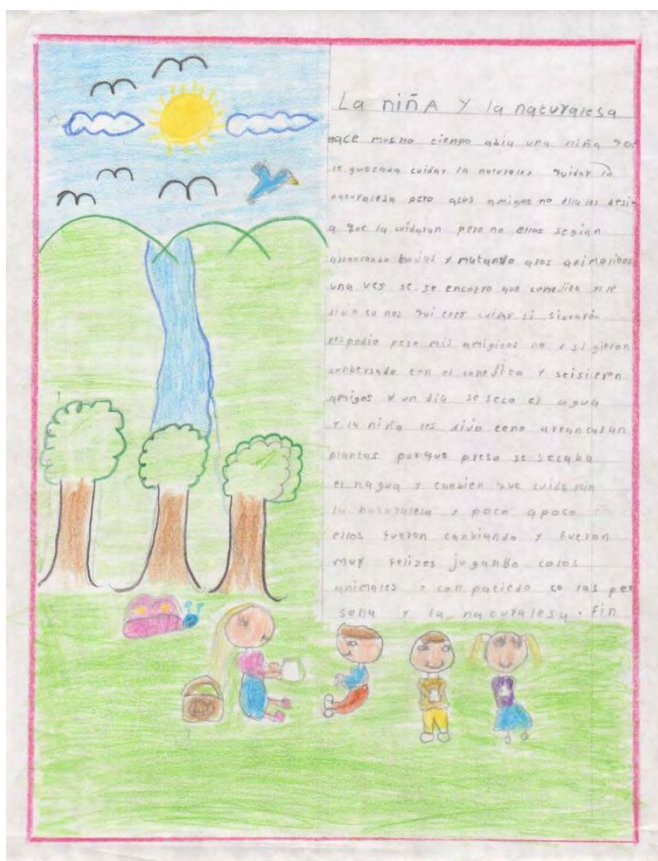 La niñA y la naturalesa
Hace musho tiempo abia una niña
le gustaba cuidar la naturalesa cuidar la
naturalesa pero asus amigos no ella les desi
a que la cuidaran pero no ellos segian
y matando alos animalitos
una ves se se encotro que conejito y le
divo tu nos cui eres cuidar si
respodio pero mis amigicos no y si gieron
conbersando con el conejito y seisieron
amigos y un dia se seco el agua
y la niña les divo ceno arrancaran
plantas porque preso se secaba
el nagua y tanbien que cuida ran
la naturalesa y poco apoco
ellos fueron canbiando y fueron
muy felizes jugando colos
animales y conpatiedo co las per
sona y la naturalesa. fin